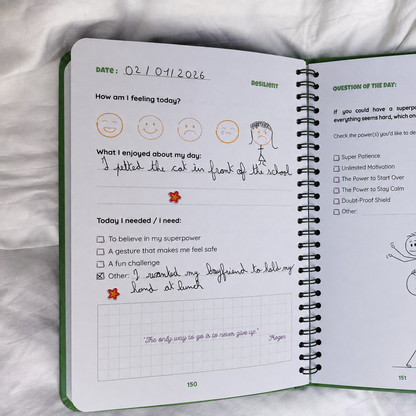 DATE: 02/01/2026
RESILIENT
How am I feeling today?
What I enjoyed about my day:
I petted the cat in front of the school
Today I needed / I need:
To believe in my superpower
A gesture that makes me feel safe
A fun challenge
Other: I wanted my boyfriend to hold my
hand at lunch
"The only way to go is to never give up."
150
QUESTION OF THE DAY:
If you could have a superpo
everything seems hard, which on
Check the power(s) you'd like to de
Super Patience
Unlimited Motivation
The Power to Start Over
The Power to Stay Calm
Doubt-Proof Shield
Other:
151